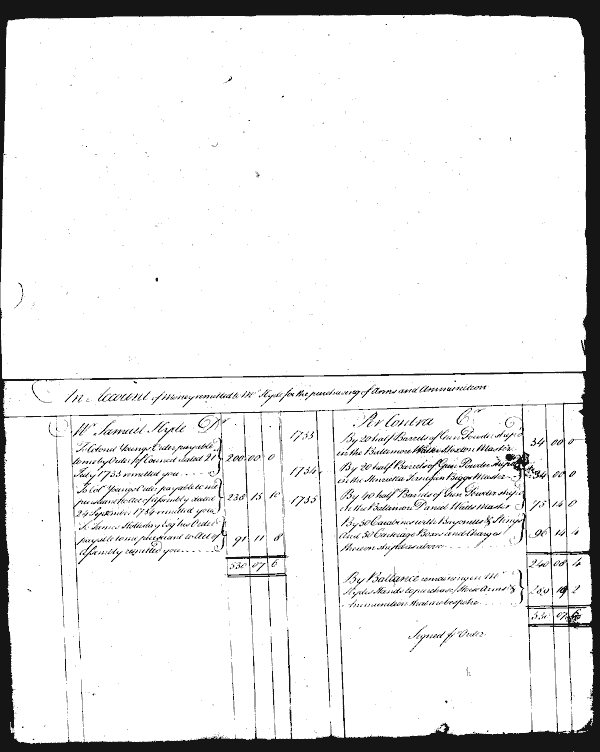 In Account of Money remitted to Mr Hyde for the purchasing of Arms and Ammunition
Mr Samuel Hyde Dr
To Colonel Youngs Order payable
to me by Order of Council dated 21
July 1733 remitted you 200 00 0
To Col Youngs Order payable to me
pursuant to Act of Assembly dated
24 September 1734 remitted you 238 15 10
To James Holladay Esq his Order
payable to me pursuant to Act of
Assembly remitted you 91 11 8
530 07 6
Pr Contra Cr
1733 By 20 half Barrels of Gun Powder shipd
in the Baltimore Hoxton Master 34 00 0
1734 By 20 half Barrels of Gun Powder shipd
in the Henrietta Biggs Master 34 00 0
1735 By 40 half Barrels of Gun Powder shipd
in the Baltimore Daniel Watts Master 75 14 0
By 50 Carabines with Bayonetts & Slings
and 50 Cartrage Boxes and Charges
thereon shipt as above 96 14 4
240 08 4
By Ballance remaining in Mr
Hydes Hands to purchase Horse Arms &
Ammunition that are bespoke 289 19 2
530 07 6
Signed pr Order